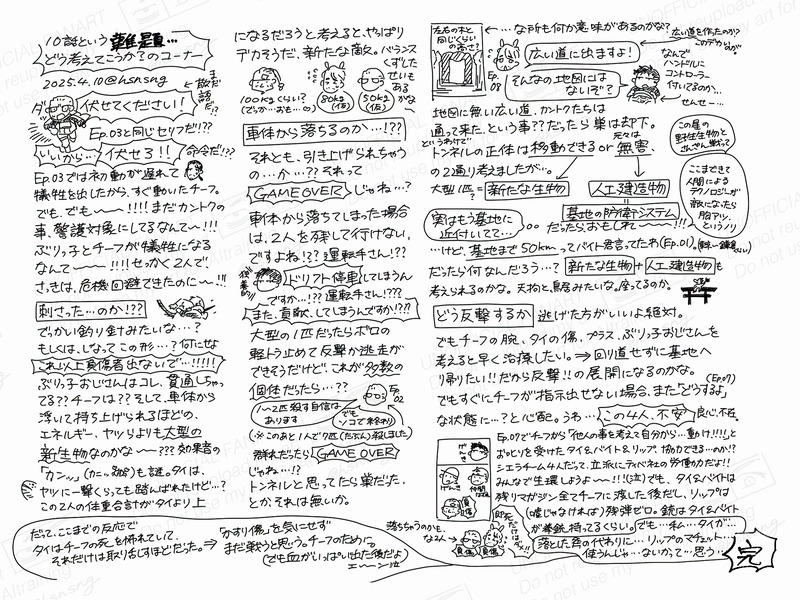 10話という難題…
どう考えてこうか?のコーナー
2025.4.10@hsnsng
まだ敵だ話!?
ダ
伏せてください!
Ep.03と同じセリフだ!??
いいから…伏せろ!!
命令だ!??
Ep.03では初動が遅れて
犠牲を出したから、すぐ動いたチーフ。
でも、でも〜〜!!!!まだカントクの
事、警護対象にしてるなんて〜!!!
ぶりっ子とチーフが犠牲になる
なんて〜〜!!!!せっかく2人で、
さっきは、危機回避できたのに〜!!!
刺さった…のか!??
でっかい釣り針みたいな…?
もしくは、しなって この形…?何にせよ
これ以上負傷者出ないで…!!!!!
ぶりっ子おじさんはコレ、貫通しちゃっ
てる??チーフは??そして、車体から
浮いて持ち上げられるほどの、
エネルギー、ヤツらよりも大型の
新生物なのかな〜???効果音の
「カンッ」も謎。タイは、
ヤツに一撃くらっても踏んばれたけど…?
この2人の体重合計がタイより上
になるだろうと考えると、やっぱり
デカそうだ、新たな敵。
バランスくずしたせいもあるかな
100kgくらい?
80kg(仮)
50kg(仮)
車体から落ちるのか…!??
それとも、引き上げられちゃう
の…か…??それって
GAME OVER じゃね…?
車体から落ちてしまった場合
は、2人を残して行けない、
ですよね!??運転手さん!??
ドリフト停車してしまうん
ですか…!??運転手さん!???
また、貢献、してしまうんですか!???
大型の1匹だったらボロの
軽トラ止めて反撃か逃走が
できそうだけど、これが多数の
個体だったら…??
Ep.02
1〜2匹殺す自信はあります
でもソコで終わり
(※このあと1人で9匹(たぶん)殺しました)
群れだったら GAME OVER
じゃね…!?
トンネルと思ってたら巣だった。
とか、それは無いか。
左右の木と同じくらいの高さ?
…な所も何か意味があるのかな?
広い道を作ったのか?このデカいのが。
Ep.08
広い道に出ますよ!
そんなの地図にはないぞ?
なんでハンドルにコントローラー付いてるのか…
せんせー…
地図に無い広い道、カントクたちは
通って来た、という事??だったら巣は却下。
というわけで
トンネルの正体は移動できるor元々は無害、
の2通り考えましたが…。
この星の野生生物とさんざん戦って
大型1匹?=新たな生物
人工建造物
ここまできて人間によるテクノロジーが敵になったら胸アツ、というノリ
基地の防衛システム
実はもう基地に近付いてて…
だったらおもしれ〜〜〜!!!
…けど、基地まで50kmってバイト君言ってたわ(Ep.01)。
だったら何なんだろう…? 新たな生物+人工建造物も
考えられるのかな。天狗と鳥居みたいな。座ってるのか。
どう反撃するか
逃げた方がいいよ絶対。
でもチーフの腕、タイの傷、プラス、ぶりっ子おじさんを
考えると早く治療したい。⇒回り道せずに基地へ
帰りたい!!だから反撃!!の展開になるのかな。
でもすぐにチーフが指示出せない場合、また「どうする」(Ep.07)
な状態に…?と心配。うわ…この4人、不安
良心、不在。
Ep.07でチーフから「他人の事を考えて自分から…動け!!!!」と
お叱りを受けたタイ&バイト&リップ、協力できる…のか!??
シエラチーム4人だって、立派にティベ社の労働力だよ!!
みんなで生還しようよ〜!!!(泣)でも、タイ&バイトは
残りマガジン全てチーフに渡した後だし、リップは
(嘘じゃなければ)残弾ゼロ。銃はタイ&バイト
が拳銃、持ってるくらい。でも…私…タイが…
落とした斧の代わりに…リップのマチェット…
使うんじゃ…ないかって…思う…
完
だって、ここまでの反応で
タイはチーフの死を怖れていて、
それだけは取り返すほどだった。⇒
「かすり傷」を気にせず
まだ戦うと思う。チーフのために。
(でも血がいっぱい出た後だよ
エ〜〜ン泣
落ちちゃうのかも、な2人→
負傷
負傷